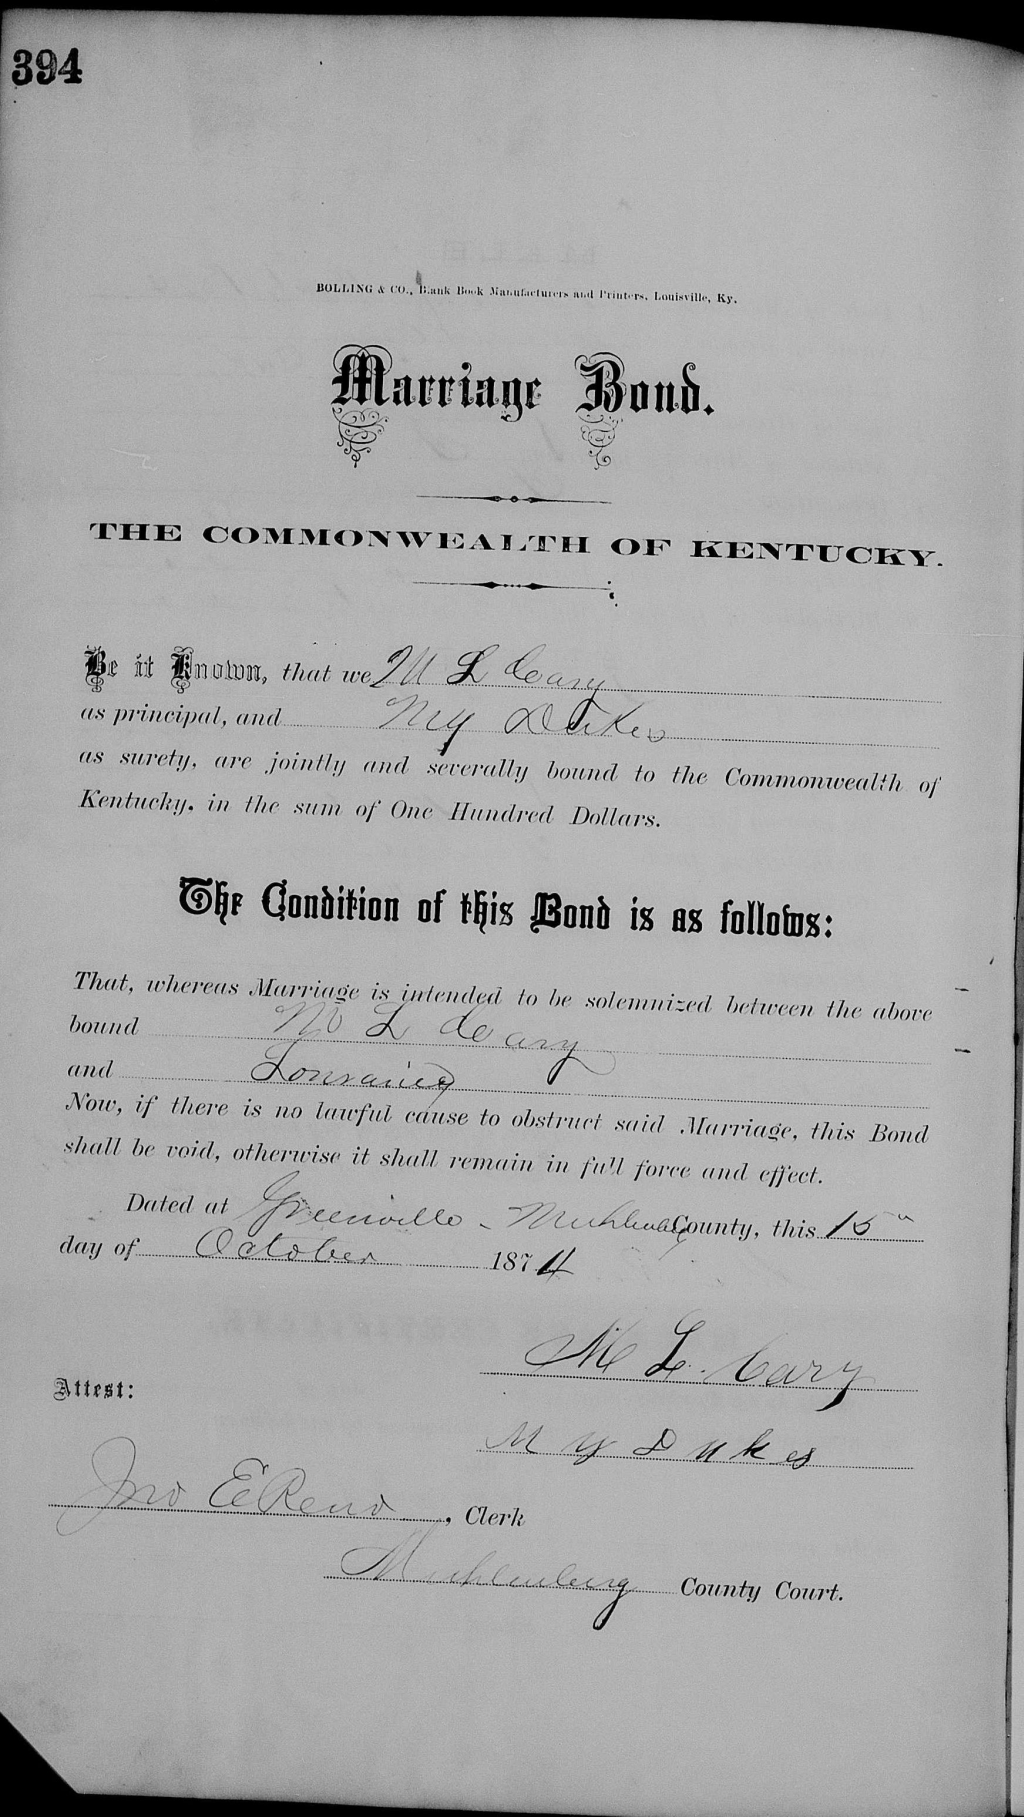 394
BOLLING & CO., Blank Book Manufacturers and Printers, Louisville, Ky.
Marriage Bond.
THE COMMONWEALTH OF KENTUCKY.
Be it Known, that we M L Cary
as principal, and M Y Dukes
as surety, are jointly and severally bound to the Commonwealth of
Kentucky, in the sum of One Hundred Dollars.
The Condition of this Bond is as follows:
That, whereas Marriage is intended to be solemnized between the above
bound M L Cary
and
Now, if there is no lawful cause to obstruct said Marriage, this Bond
shall be void, otherwise it shall remain in full force and effect.
Dated at Greenville - Muhlenberg County, this 15"
day of October 1874
M L. Cary
Attest:
M Y Dukes
Jno E Reno, Clerk
Muhlenberg County Court.